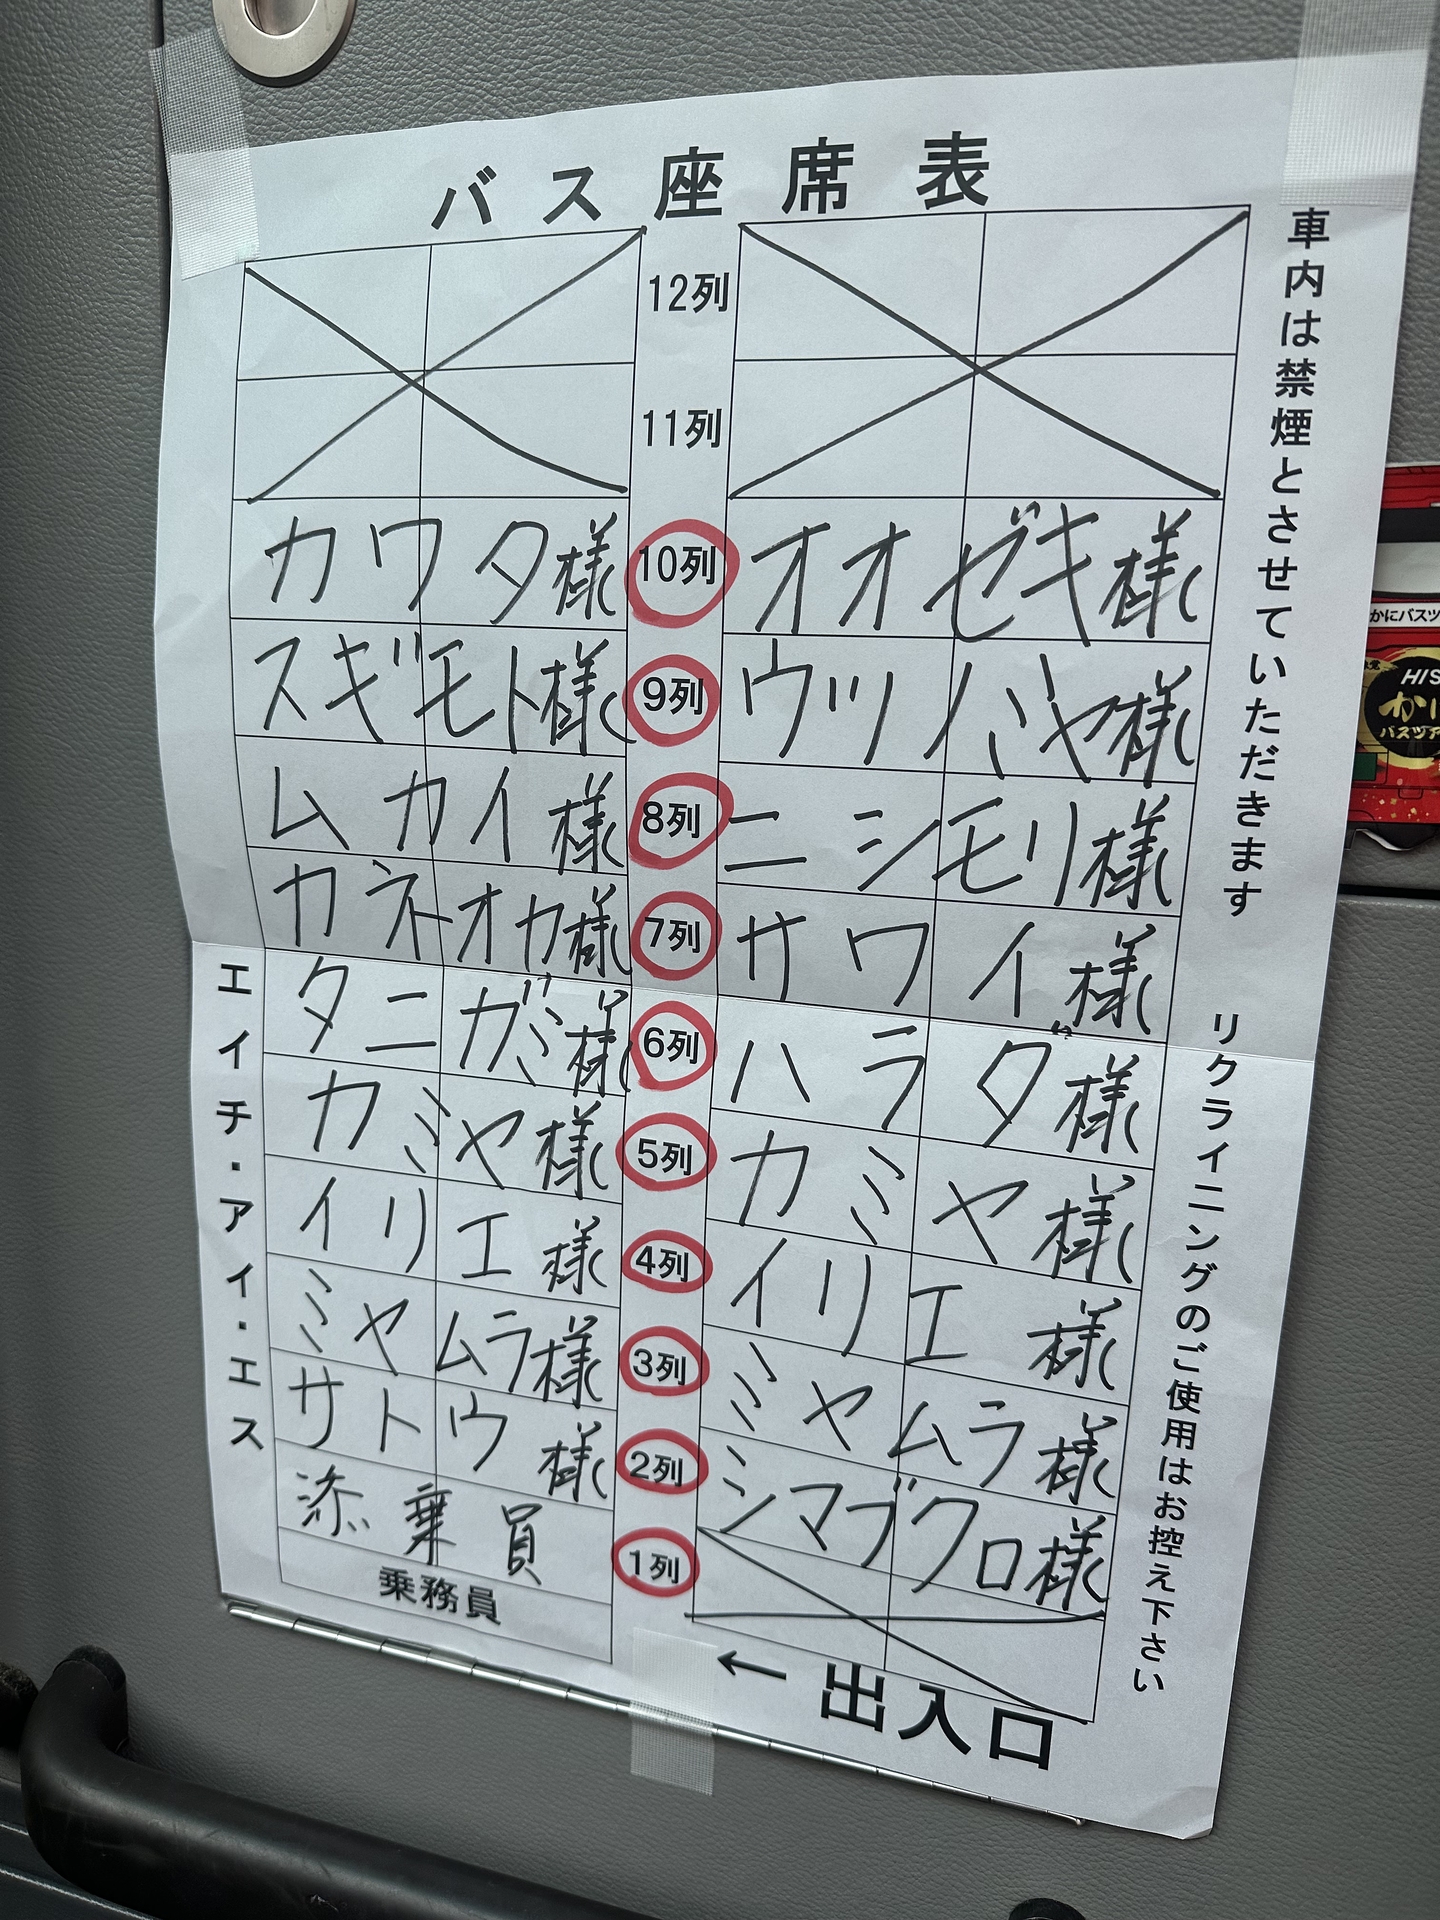 バス座席表
12列
11列
カワタ様 10列 オオゼキ様
スギモト様 9列 ウツハヤ様
ムカイ様 8列 ニシモリ様
カネオカ様 7列 サワイ様
タニガミ様 6列 ハラダ様
カミヤ様 5列 カミヤ様
イリエ様 4列 イリエ様
ミヤムラ様 3列 ミヤムラ様
サトウ様 2列 シマブクロ様
添乗員 1列
乗務員
←出入口
車内は禁煙とさせていただきます
リクライニングのご使用はお控え下さい
エイチ・アイ・エス
かにバスツ
HIS
バスツア